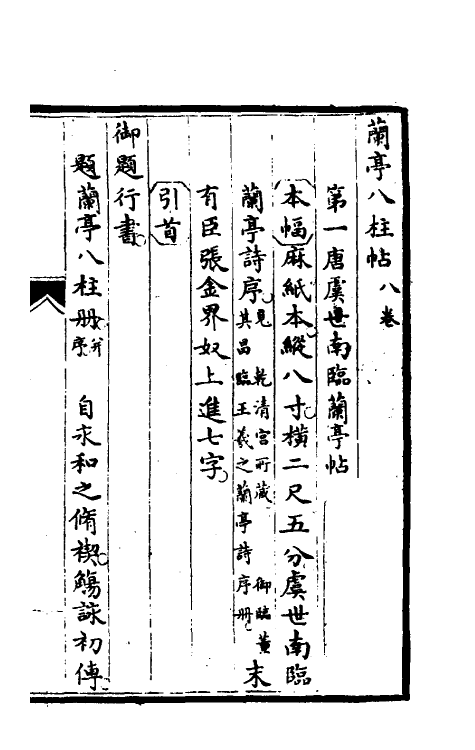 蘭亭八柱帖八卷
第一唐虞世南臨蘭亭帖
本幅麻紙本縱八寸橫二尺五分虞世南臨
蘭亭詩序見乾清宮所藏御臨董其昌臨王羲之蘭亭詩序冊末
有臣張金界奴上進七字
引首
御題行書
題蘭亭八柱冊并序 自永和之脩禊觴詠初傳